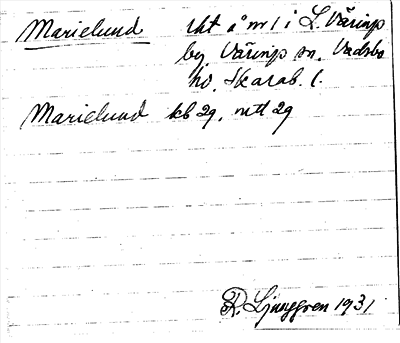 Marielund uht å nr 1 i L. Väring
by, Värings sn. Vadsbo
hd. Skarab. l.
Marielund kb 29, mtl 29
R. Ljunggren 1931